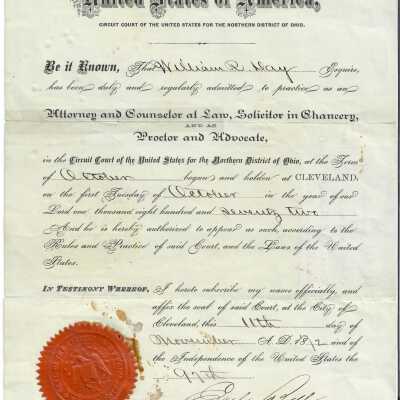 United States of America,
CIRCUIT COURT OF THE UNITED STATES FOR THE NORTHERN DISTRICT OF OHIO.
Be it Known, That William R. Day Esquire,
has been duly and regularly admitted to practice as an
Attorney and Counselor at Law, Solicitor in Chancery,
AND AS
Proctor and Advocate,
in the Circuit Court of the United States for the Northern District of Ohio, at the Term
of October begun and holden at CLEVELAND,
on the first Tuesday of October in the year of our
Lord one thousand eight hundred and seventy two
And he is hereby authorized to appear as such, according to the
Rules and Practice of said Court, and the Laws of the United
States.
IN TESTIMONY WHEREOF, I hereto subscribe my name officially, and
affix the seal of said Court, at the City of
Cleveland, this 11th day of
November A.D. 1872 and of
the Independence of the United States the
97th